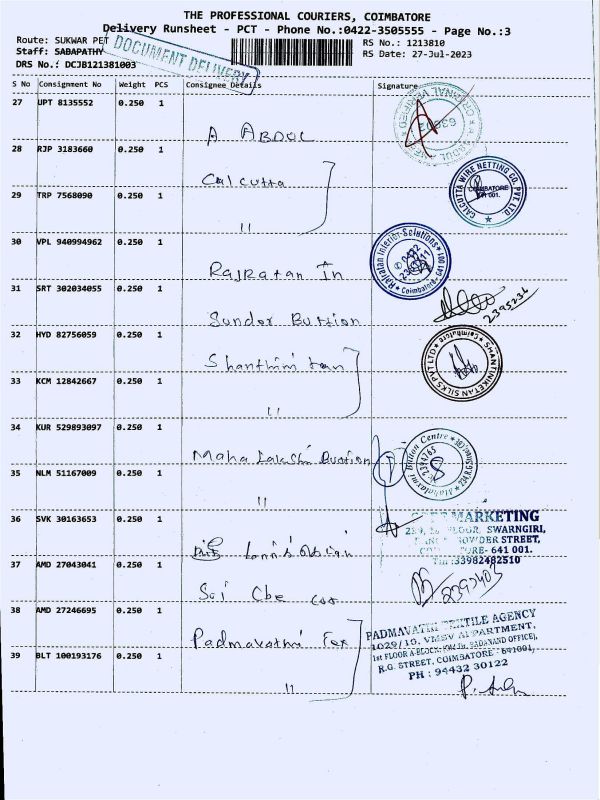 THE PROFESSIONAL COURIERS, COIMBATORE
Delivery Runsheet - PCT - Phone No.:0422-3505555 - Page No.:3
Route: SUKWAR PET
RS No.: 1213810
Staff: SABAPATHY
RS Date: 27-Jul-2023
DRS No.: DCJB121381003
DOCUMENT DELIVERY
S No Consignment No Weight PCS Consignee Details Signature
27 UPT 8135552 0.250 1
A ABDUL
28 RJP 3183660 0.250 1
Calcutta
CALCUTTA WIRE NETTING CO. PVT. LTD.
COIMBATORE
641 001.
29 TRP 7568090 0.250 1
"
30 VPL 940994962 0.250 1
Rajratan In
Rajratan Interior Solutions
Coimbatore - 641 001
31 SRT 302034055 0.250 1
Sundor Buttion
2395234
32 HYD 82756059 0.250 1
Shanthini tan
SHANTHINIKETAN SILKS PVT LTD
Coimbatore
33 KCM 12842667 0.250 1
"
34 KUR 529893097 0.250 1
Maha Lakshi Buttion
Mahalaxmi Button Centre
35 NLM 51167009 0.250 1
"
36 SVK 30163653 0.250 1
MARKETING
FLOOR, SWARNGIRI,
POWDER STREET,
641 001.
:33982482510
37 AMD 27043041 0.250 1
Sai Cbe
2392403
38 AMD 27246695 0.250 1
Padmavathi Tex
PADMAVATHI TEXTILE AGENCY
1029/10, VMSV APARTMENT,
1st FLOOR A-BLOCK, SADANAND OFFICE),
R.G. STREET, COIMBATORE - 641001,
PH : 94432 30122
39 BLT 100193176 0.250 1
"